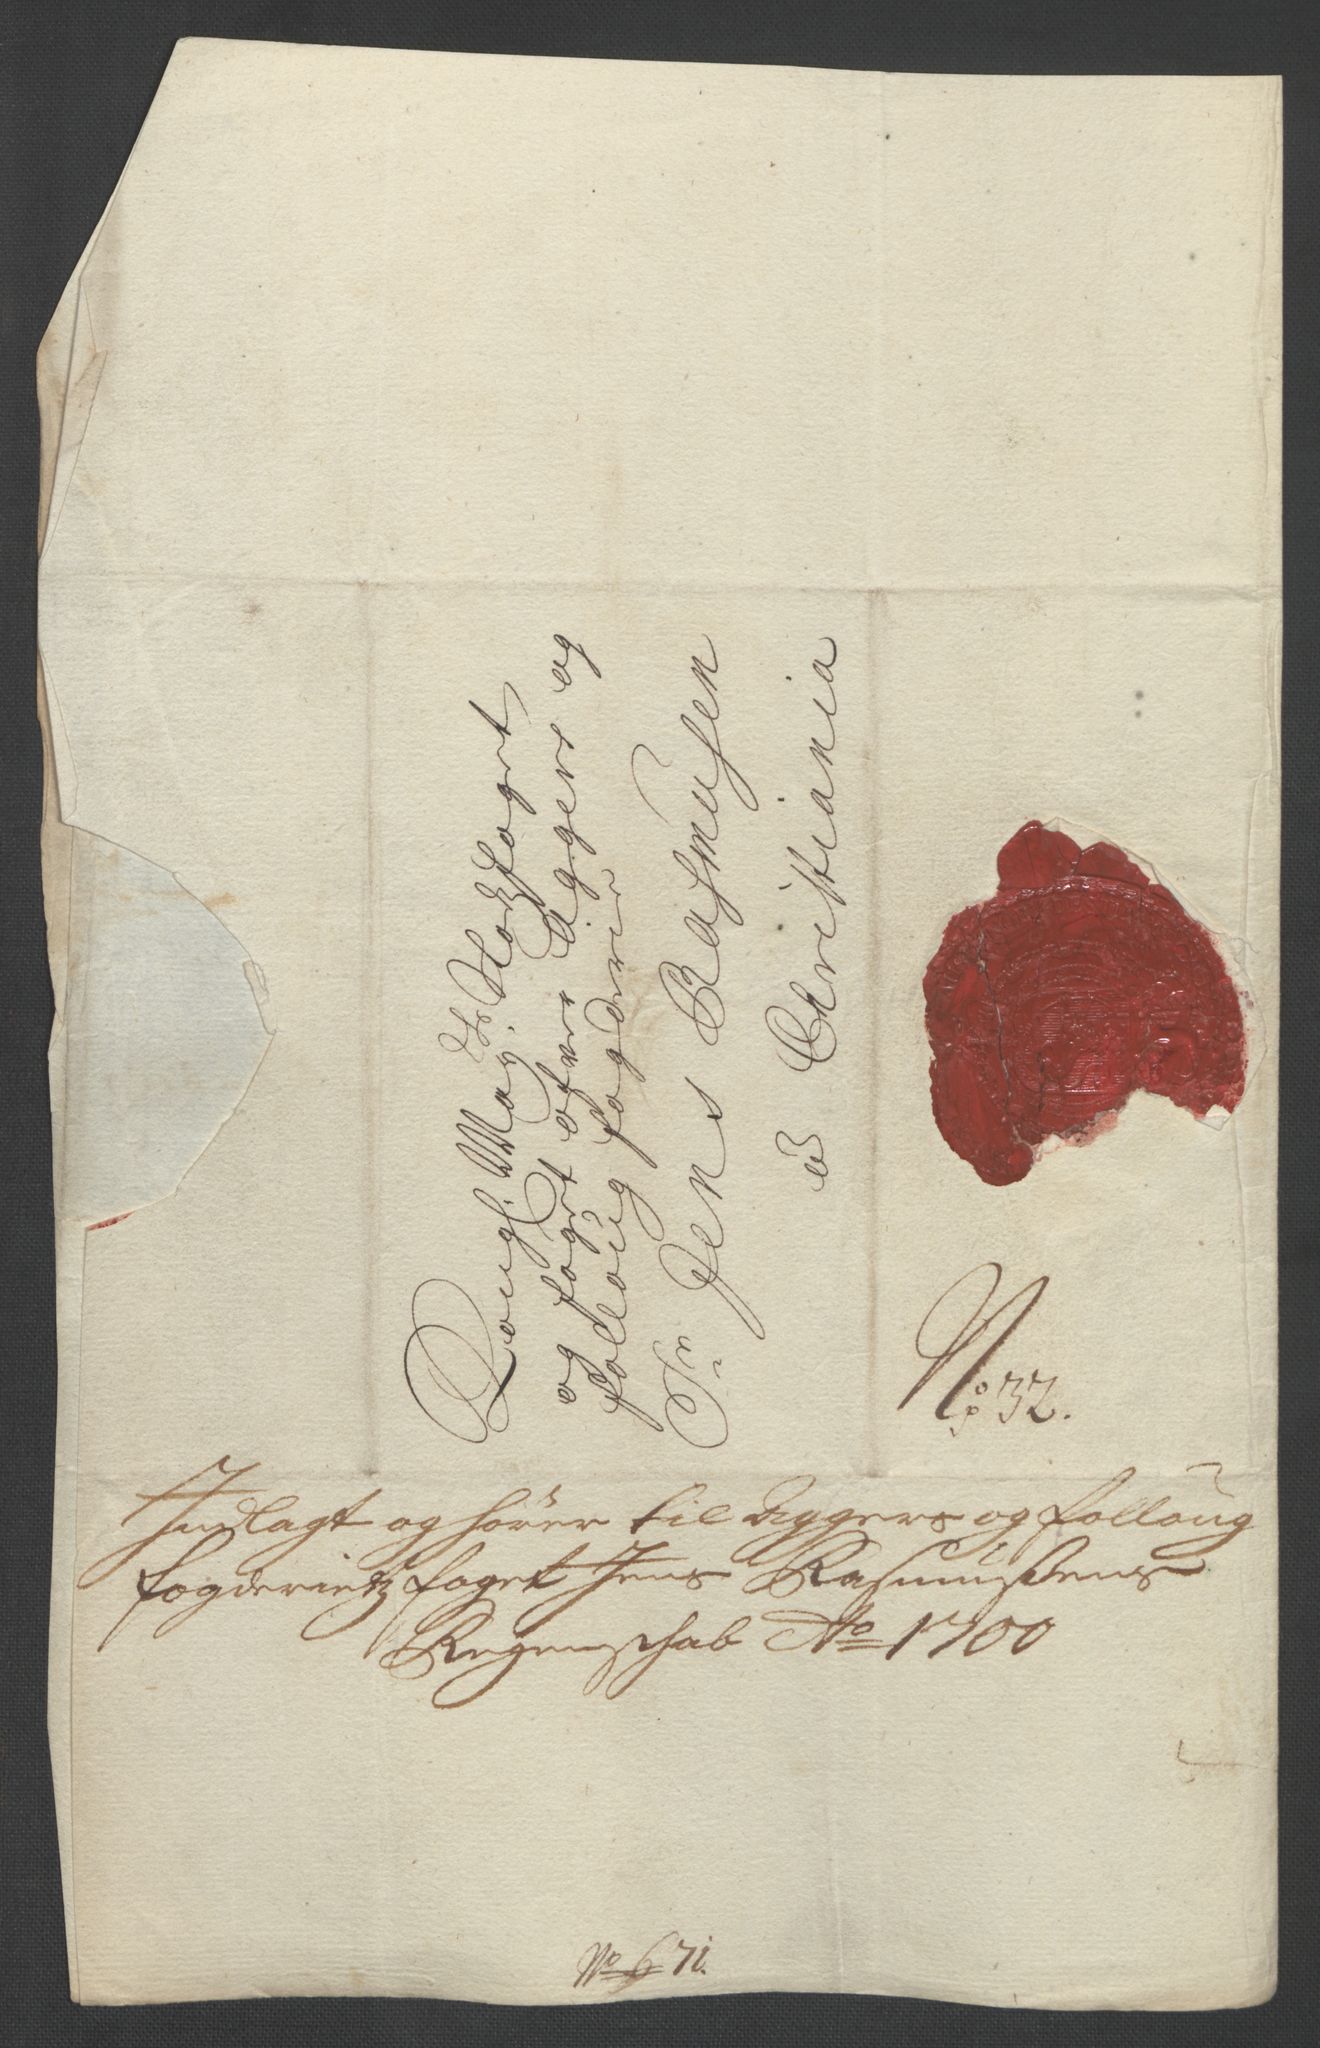 Kongl. May. tz Slotzfoget
og fogt ofver Aggers og
folloug fogderie
Sr. Jens Rasmusen
á Christiania
No. 32.
Indlagt og hörer til Aggers og Folloug
fogderietz foget Jens Rasmusens
Regenschab Ao 1700
No 6 71.